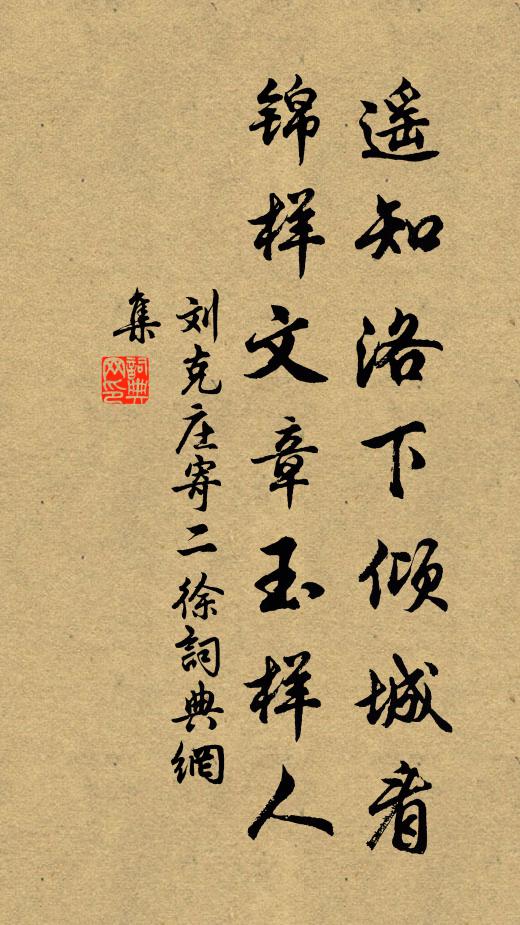 遥知洛下倾城看
锦样文章玉样人
刘克庄寄二徐詞典網
集
詞典网印